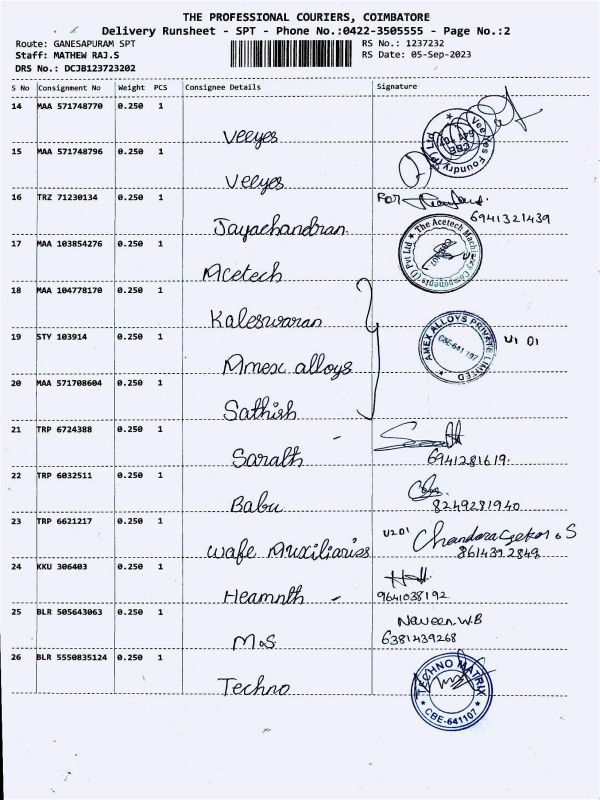 THE PROFESSIONAL COURIERS, COIMBATORE
Delivery Runsheet - SPT - Phone No.:0422-3505555 - Page No.:2
Route: GANESAPURAM SPT RS No.: 1237232
Staff: MATHEW RAJ.S RS Date: 05-Sep-2023
DRS No.: DCJB123723202
S No Consignment No Weight PCS Consignee Details Signature
14 MAA 571748770 0.250 1
Veeyes
Vee Yes Foundry (P) Ltd
641 107
CBE
15 MAA 571748796 0.250 1
Veeyes
16 TRZ 71230134 0.250 1 For
6941321439
Jayachandran.
17 MAA 103854276 0.250 1
Acetech
The Acetech Machinery Components (I) Pvt Ltd
18 MAA 104778170 0.250 1
Kaleswaran
19 STY 103914 0.250 1
Amex alloys
AMEX ALLOYS PRIVATE LIMITED
CBE-641 107
U1 01
20 MAA 571708604 0.250 1
Sathish
21 TRP 6724388 0.250 1
Sarath
6941281619.
22 TRP 6032511 0.250 1
Babu
8249281940
23 TRP 6621217 0.250 1
Wafe Auxiliaries
U201 Chandorasekar.S
8614392849
24 KKU 306403 0.250 1
Heamnth
9641038192
25 BLR 505643063 0.250 1 Naveen.W.B
6381439268
M.S.
26 BLR 5550835124 0.250 1
Techno
TECHNO MATRIX
CBE-641107